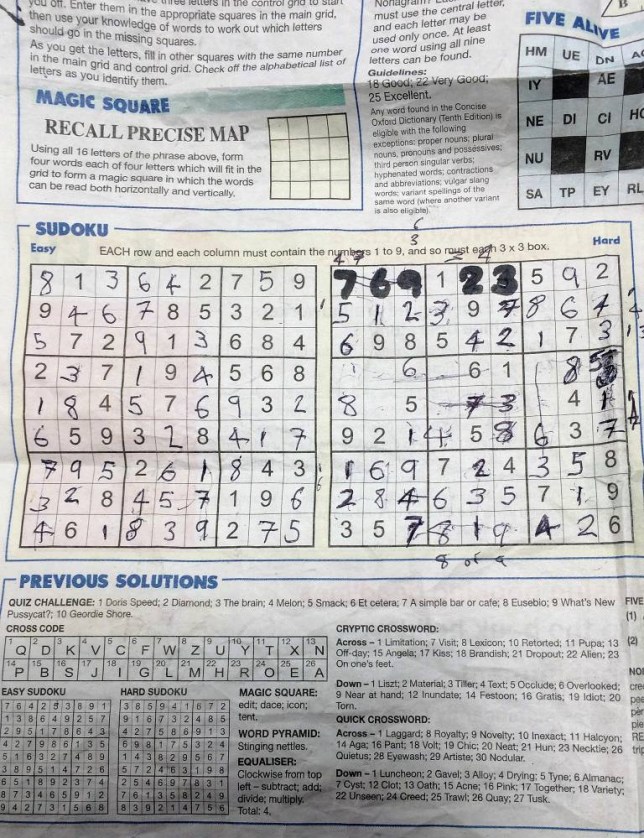 you off. Enter them in the appropriate squares in the main grid,
then use your knowledge of words to work out which letters
should go in the missing squares.
As you get the letters, fill in other squares with the same number
in the main grid and control grid. Check off the alphabetical list of
letters as you identify them.
MAGIC SQUARE
RECALL PRECISE MAP
Using all 16 letters of the phrase above, form
four words each of four letters which will fit in the
grid to form a magic square in which the words
can be read both horizontally and vertically.
must use the central letter,
and each letter may be
used only once. At least
one word using all nine
letters can be found.
Guidelines:
18 Good; 22 Very Good;
25 Excellent.
Any word found in the Concise
Oxford Dictionary (Tenth Edition) is
eligible with the following
exceptions: proper nouns; plural
nouns, pronouns and possessives;
third person singular verbs;
hyphenated words; contractions
and abbreviations; vulgar slang
words; variant spellings of the
same word (where another variant
is also eligible).
FIVE ALIVE
HM UE DN
IY AE
NE DI CI
NU RV
SA TP EY RL
SUDOKU
Easy EACH row and each column must contain the numbers 1 to 9, and so must each 3 x 3 box. Hard
8 1 3 6 4 2 7 5 9
9 4 6 7 8 5 3 2 1
5 7 2 9 1 3 6 8 4
2 3 7 1 9 4 5 6 8
1 8 4 5 7 6 9 3 2
6 5 9 3 2 8 4 1 7
7 9 5 2 6 1 8 4 3
3 2 8 4 5 7 1 9 6
4 6 1 8 3 9 2 7 5
7 6 9 1 2 3 5 9 2
5 1 2 3 9 8 6 4
6 9 8 5 4 2 1 7 3
6 6 1 8
8 5 7 3 4
9 2 5 6 3 7
1 6 9 7 2 4 3 5 8
2 8 4 6 3 5 7 1 9
3 5 7 8 1 4 2 6
8 or 9
PREVIOUS SOLUTIONS
QUIZ CHALLENGE: 1 Doris Speed; 2 Diamond; 3 The brain; 4 Melon; 5 Smack; 6 Et cetera; 7 A simple bar or cafe; 8 Eusebio; 9 What's New
Pussycat?; 10 Geordie Shore.
CROSS CODE
1 2 3 4 5 6 7 8 9 10 11 12 13
Q D K V C F W Z U Y T X N
14 15 16 17 18 19 20 21 22 23 24 25 26
P B S J I G L M H R O E A
EASY SUDOKU HARD SUDOKU
MAGIC SQUARE:
edit; dace; icon;
tent.
WORD PYRAMID:
Stinging nettles.
EQUALISER:
Clockwise from top
left – subtract; add;
divide; multiply.
Total: 4.
CRYPTIC CROSSWORD:
Across – 1 Limitation; 7 Visit; 8 Lexicon; 10 Retorted; 11 Pupa; 13
Off-day; 15 Angela; 17 Kiss; 18 Brandish; 21 Dropout; 22 Alien; 23
On one's feet.
Down – 1 Liszt; 2 Material; 3 Tiller; 4 Text; 5 Occlude; 6 Overlooked;
9 Near at hand; 12 Inundate; 14 Festoon; 16 Gratis; 19 Idiot; 20
Torn.
QUICK CROSSWORD:
Across – 1 Laggard; 8 Royalty; 9 Novelty; 10 Inexact; 11 Halcyon;
14 Aga; 16 Pant; 18 Volt; 19 Chic; 20 Neat; 21 Hun; 23 Necktie; 26
Quietus; 28 Eyewash; 29 Artiste; 30 Nodular.
Down – 1 Luncheon; 2 Gavel; 3 Alloy; 4 Drying; 5 Tyne; 6 Almanac;
7 Cyst; 12 Clot; 13 Oath; 15 Acne; 16 Pink; 17 Together; 18 Variety;
22 Unseen; 24 Creed; 25 Trawl; 26 Quay; 27 Tusk.
FIVE
(1)
(2)